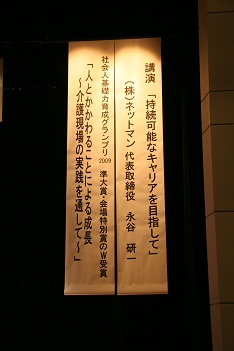 講演 「持続可能なキャリアを目指して」
(株)ネットマン 代表取締役 永谷 研一
社会人基礎力育成グランプリ2009 準大賞・会場特別賞のW受賞
「人とかかわることによる成長
～介護現場の実践を通して～」